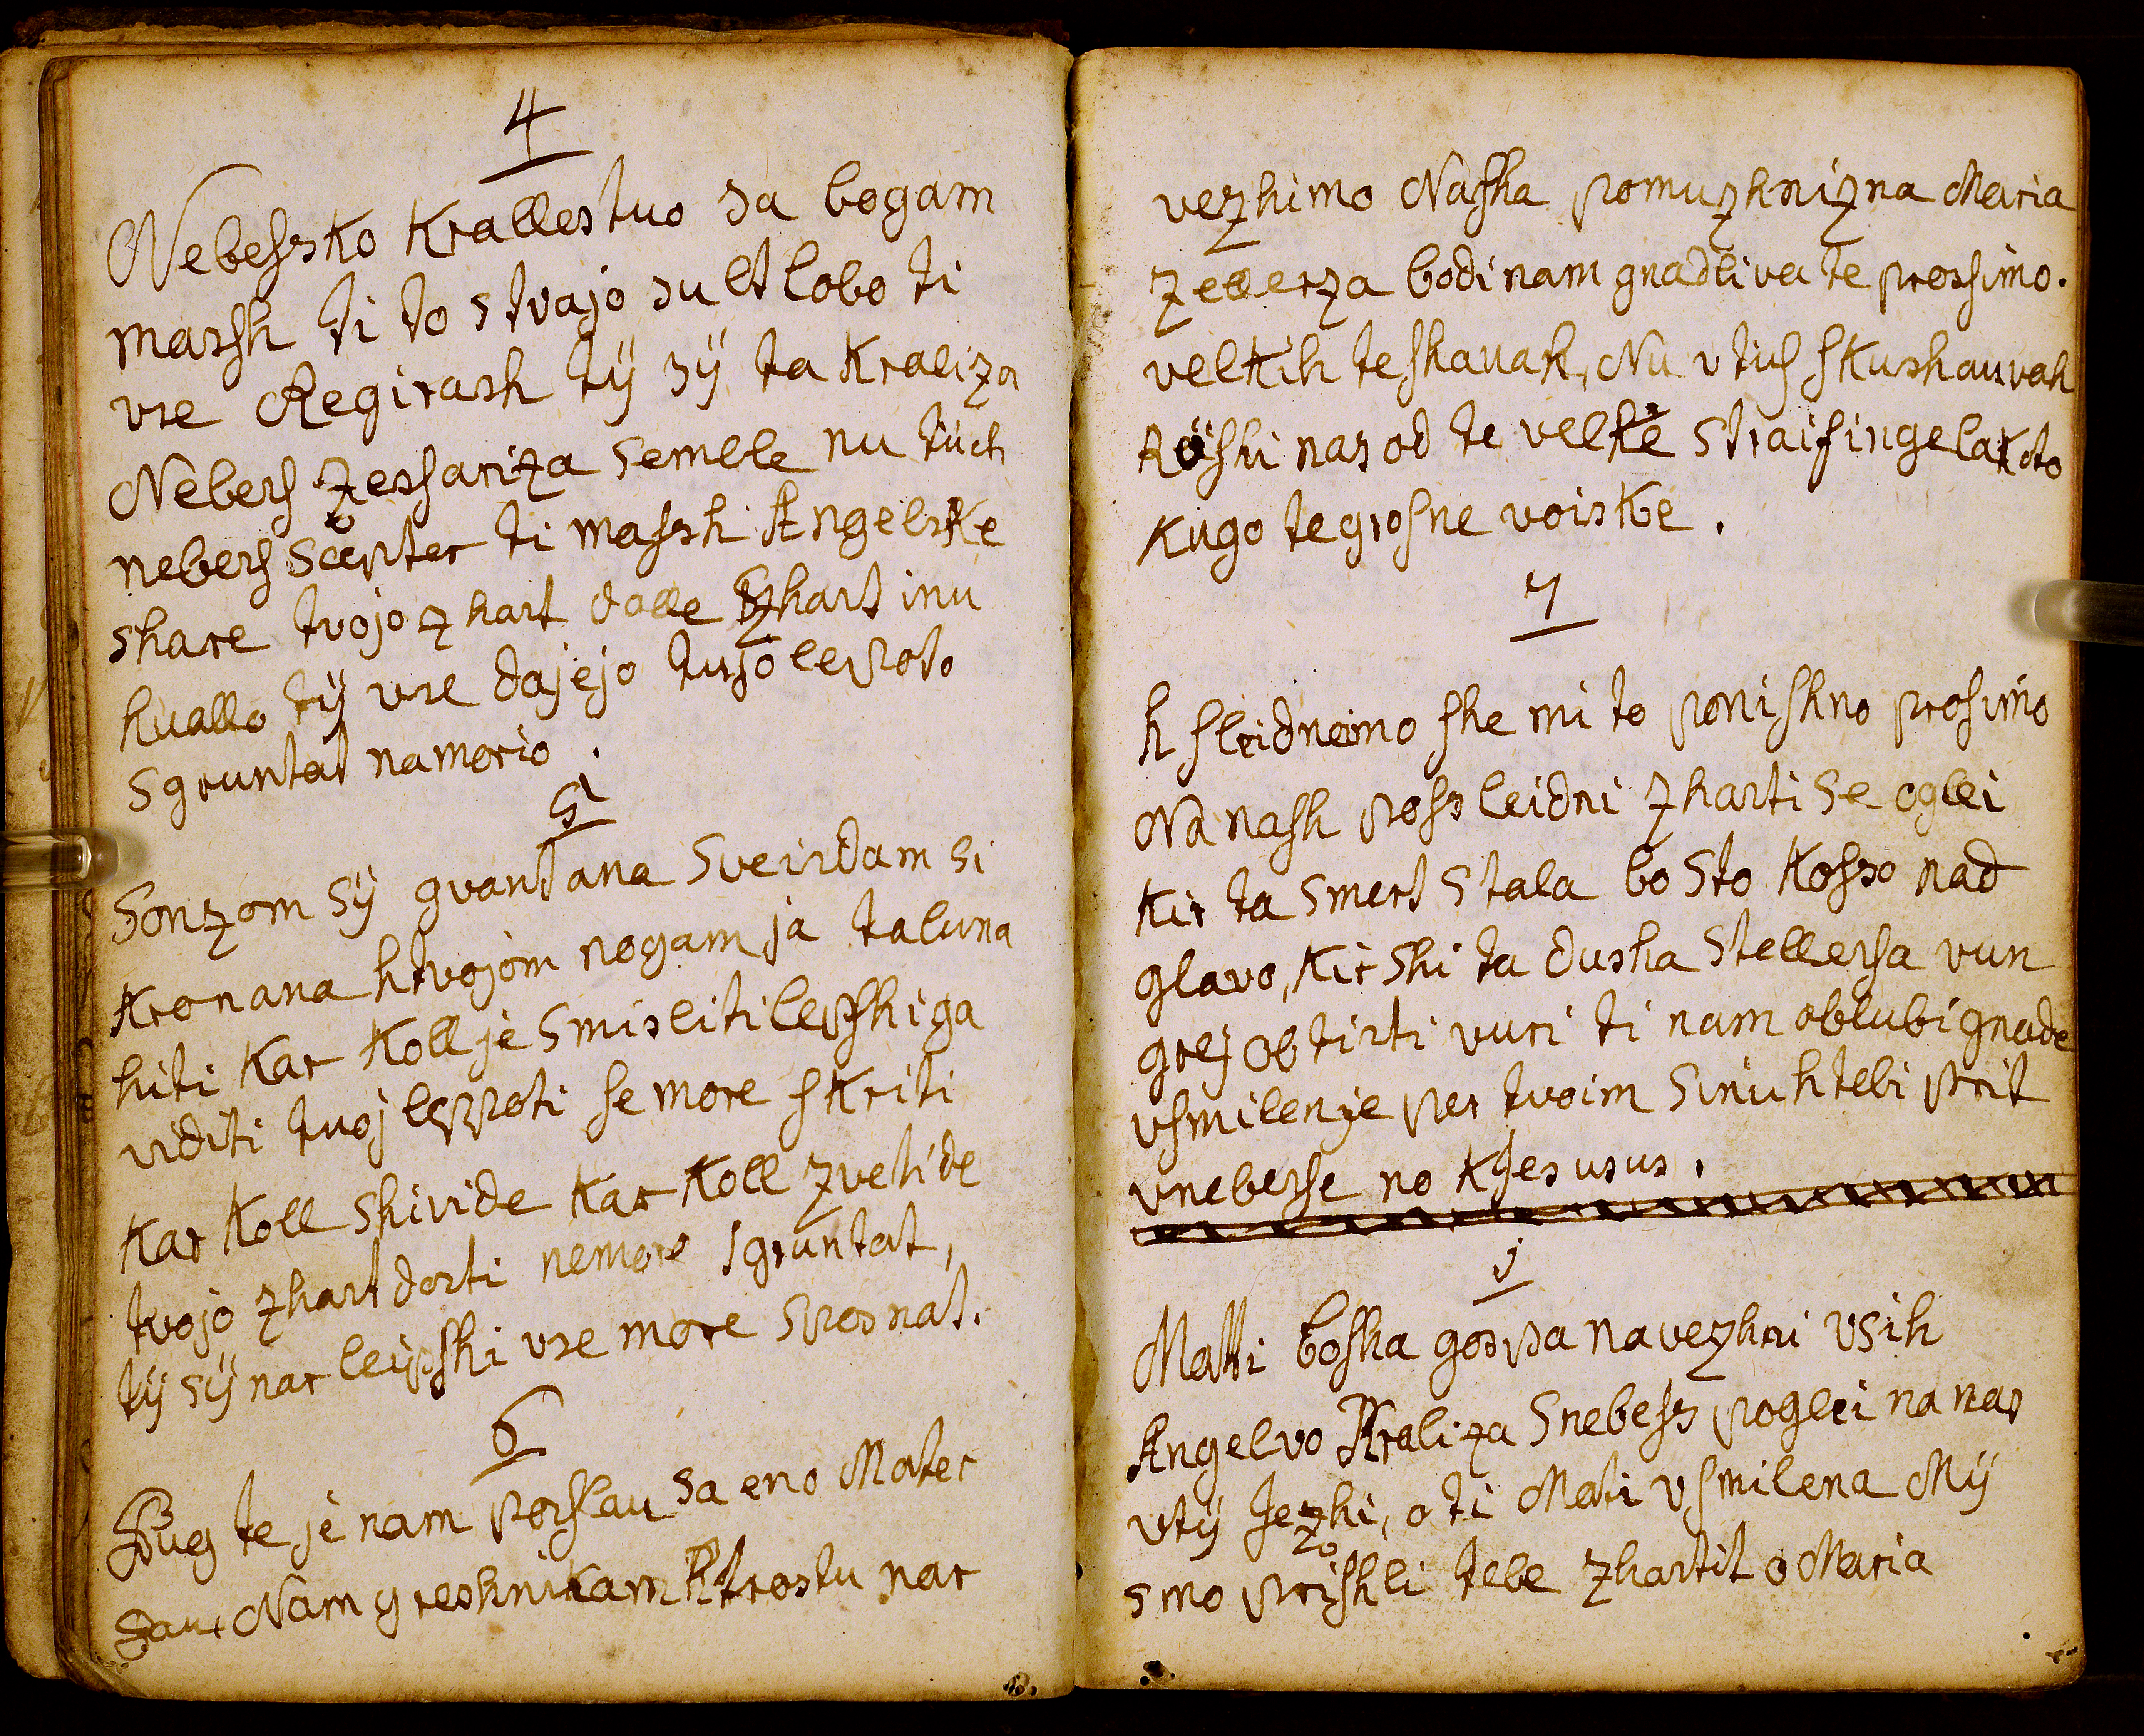 4
Nebeſsko Krallestuo sa bogam
marsh ti to stvajo sult lobo ti
vse Regirash tÿ sÿ ta Kraliza
Nebeſs Zesſariza Semlle nu tüch
nebeſs Scepter ti maſsh Angelske
share tvojo zhart dalle zhart inu
huallo tÿ vse dajejo tujo lepoto
sgruntat namorio .
5
Sonzom sÿ gvantana Sveisdam si
Kronana htvojom nogam ja taluna
hiti Kar Koll je Smisliti lepſhiga
viditi tuoj leppoti ſe more ſkriti
Kar Koll Shivide Kar Koll Zvetide
tvojo zhart dorti nemore sgruntat,
tÿ sÿ nar leipſhi vse more Sposnat.
6
Bug te je nam poſlau sa eno Mater
dau Nam greshnikam Ktrostu nar
vezhimo Naſha pomuzhnizna Maria
Zellerza bodi nam gnadliva te prosſimo.
velkih teſhauah, Nu vtih ſkushauvah
Röſhi nas od te velke Straifingelakoto
Kugo te groſne voiske .
7
h ſleidnoimo ſhe mi to poniſhno proſimo
Na naſh poſsleidni Zharti se oglei
Kir ta Smert Stala bo Sto Koſso nad
glavo, Kir Shi ta dusha Stellerſa vun
grej ob tirti vuri ti nam oblubi gnade
vſmilenje per tvoim Sinu htebi prit
vnebeſse no KJesusus .
j
Matti boſha goſpa navezhni vsih
Angelvo Kraliza Snebeſs poglei na nas
vtÿ Jezhi, o ti Mati vſmilena Mÿ
zo
smo priſhli tebe zhartit o Maria